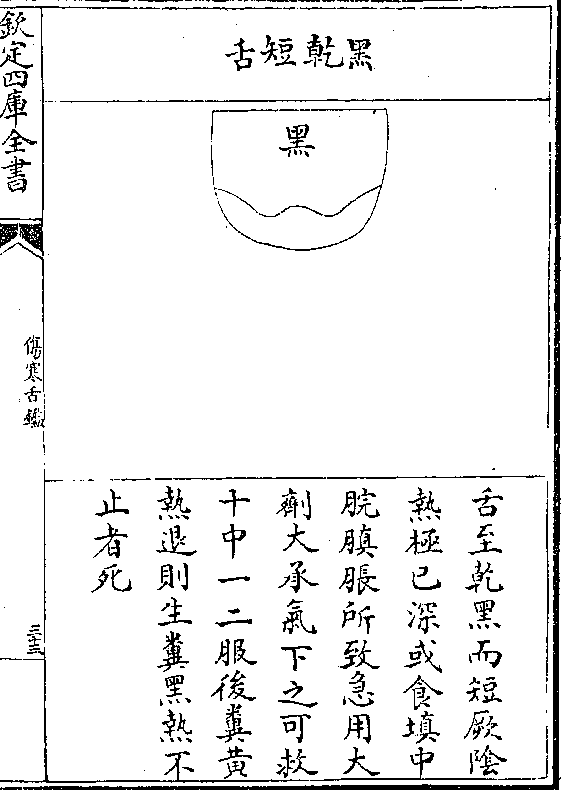 黑乾短舌
黑
舌至乾黑而短厥陰
熱極已深或食填中
脘䐜脹所致急用大
劑大承氣下之可救
十中一二服後糞黄
熱退則生糞黑熱不
止者死
欽定四庫全書
傷寒舌鑑
三十三